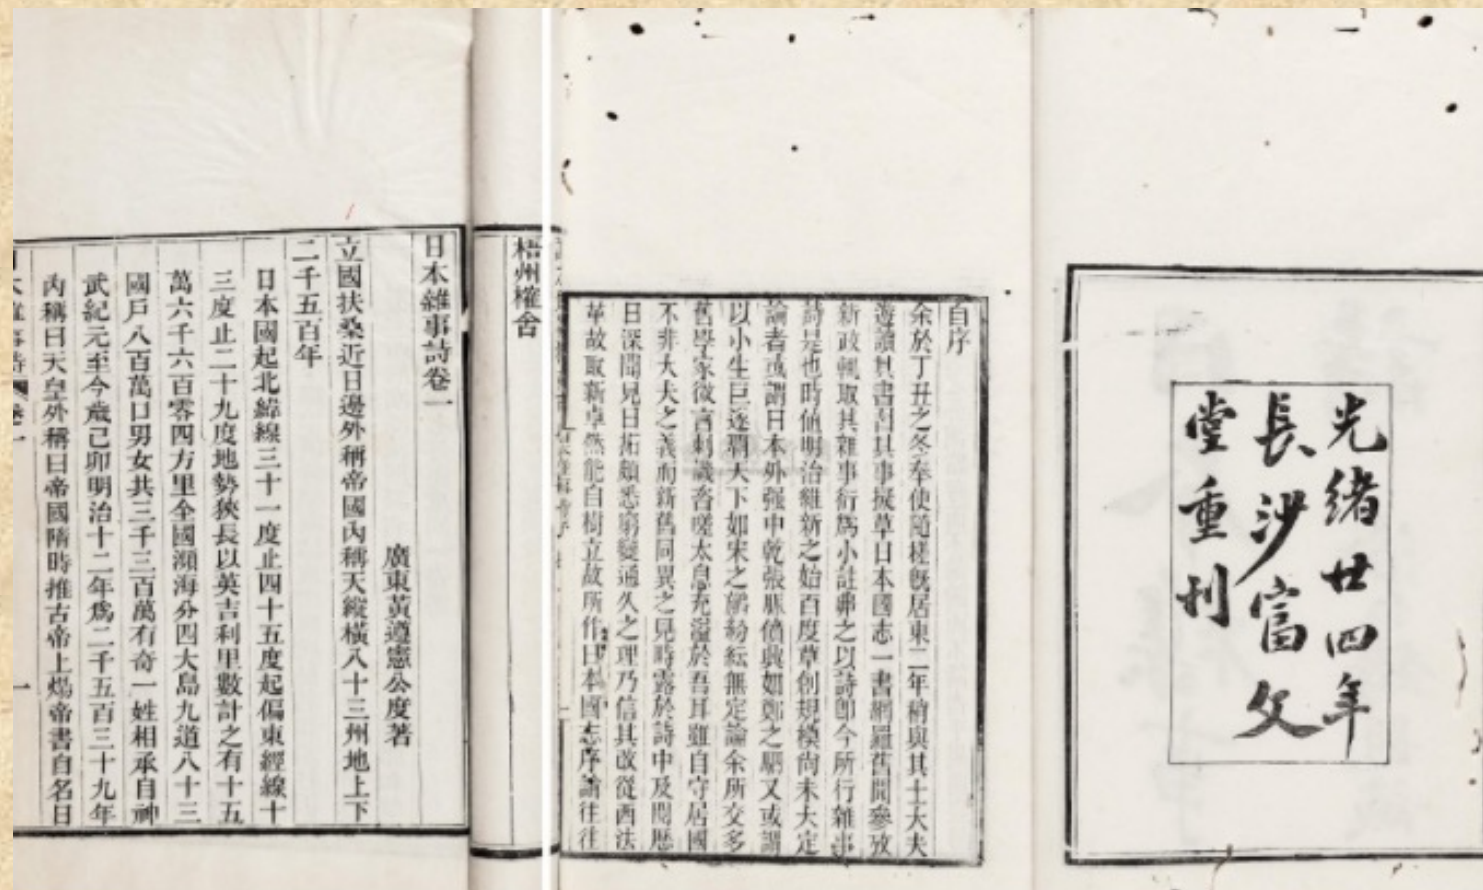 光緒廿四年
長沙富文
堂重刊
自序
余於丁丑之冬奉使隨槎既居東二年稍與其士大夫
遊讀其書習其事擬草日本國志一書網羅舊聞參攷
新政輒取其雜事衍爲小註弗之以詩卽今所行雜事
詩是也時値明治維新之始百度草創規模尚未大定
論者或謂日本外强中乾張脈僨興如鄭之駟又或謂
以小生巨遂霸天下如宋之鸇紛紜無定論余所交多
舊學家微言刺譏咨嗟太息充溢於吾耳雖自守居國
不非大夫之義而新舊同異之見時露於詩中及閱歷
日深聞見日拓頗悉窮變通久之理乃信其改從西法
革故取新卓然能自樹立故所作日本國志序論往往
梧州權舍
日本雜事詩卷一
廣東黃遵憲公度著
立國扶桑近日邊外稱帝國內稱天縱橫八十三州地上下
二千五百年
日本國起北緯線三十一度止四十五度起偏東經線十
三度止二十九度地勢狹長以英吉利里數計之有十五
萬六千六百零四方里全國瀕海分四大島九道八十三
國戶八百萬口男女共三千三百萬有奇一姓相承自神
武紀元至今歲己卯明治十二年爲二千五百三十九年
內稱曰天皇外稱曰帝國隋時推古帝上煬帝書自名日